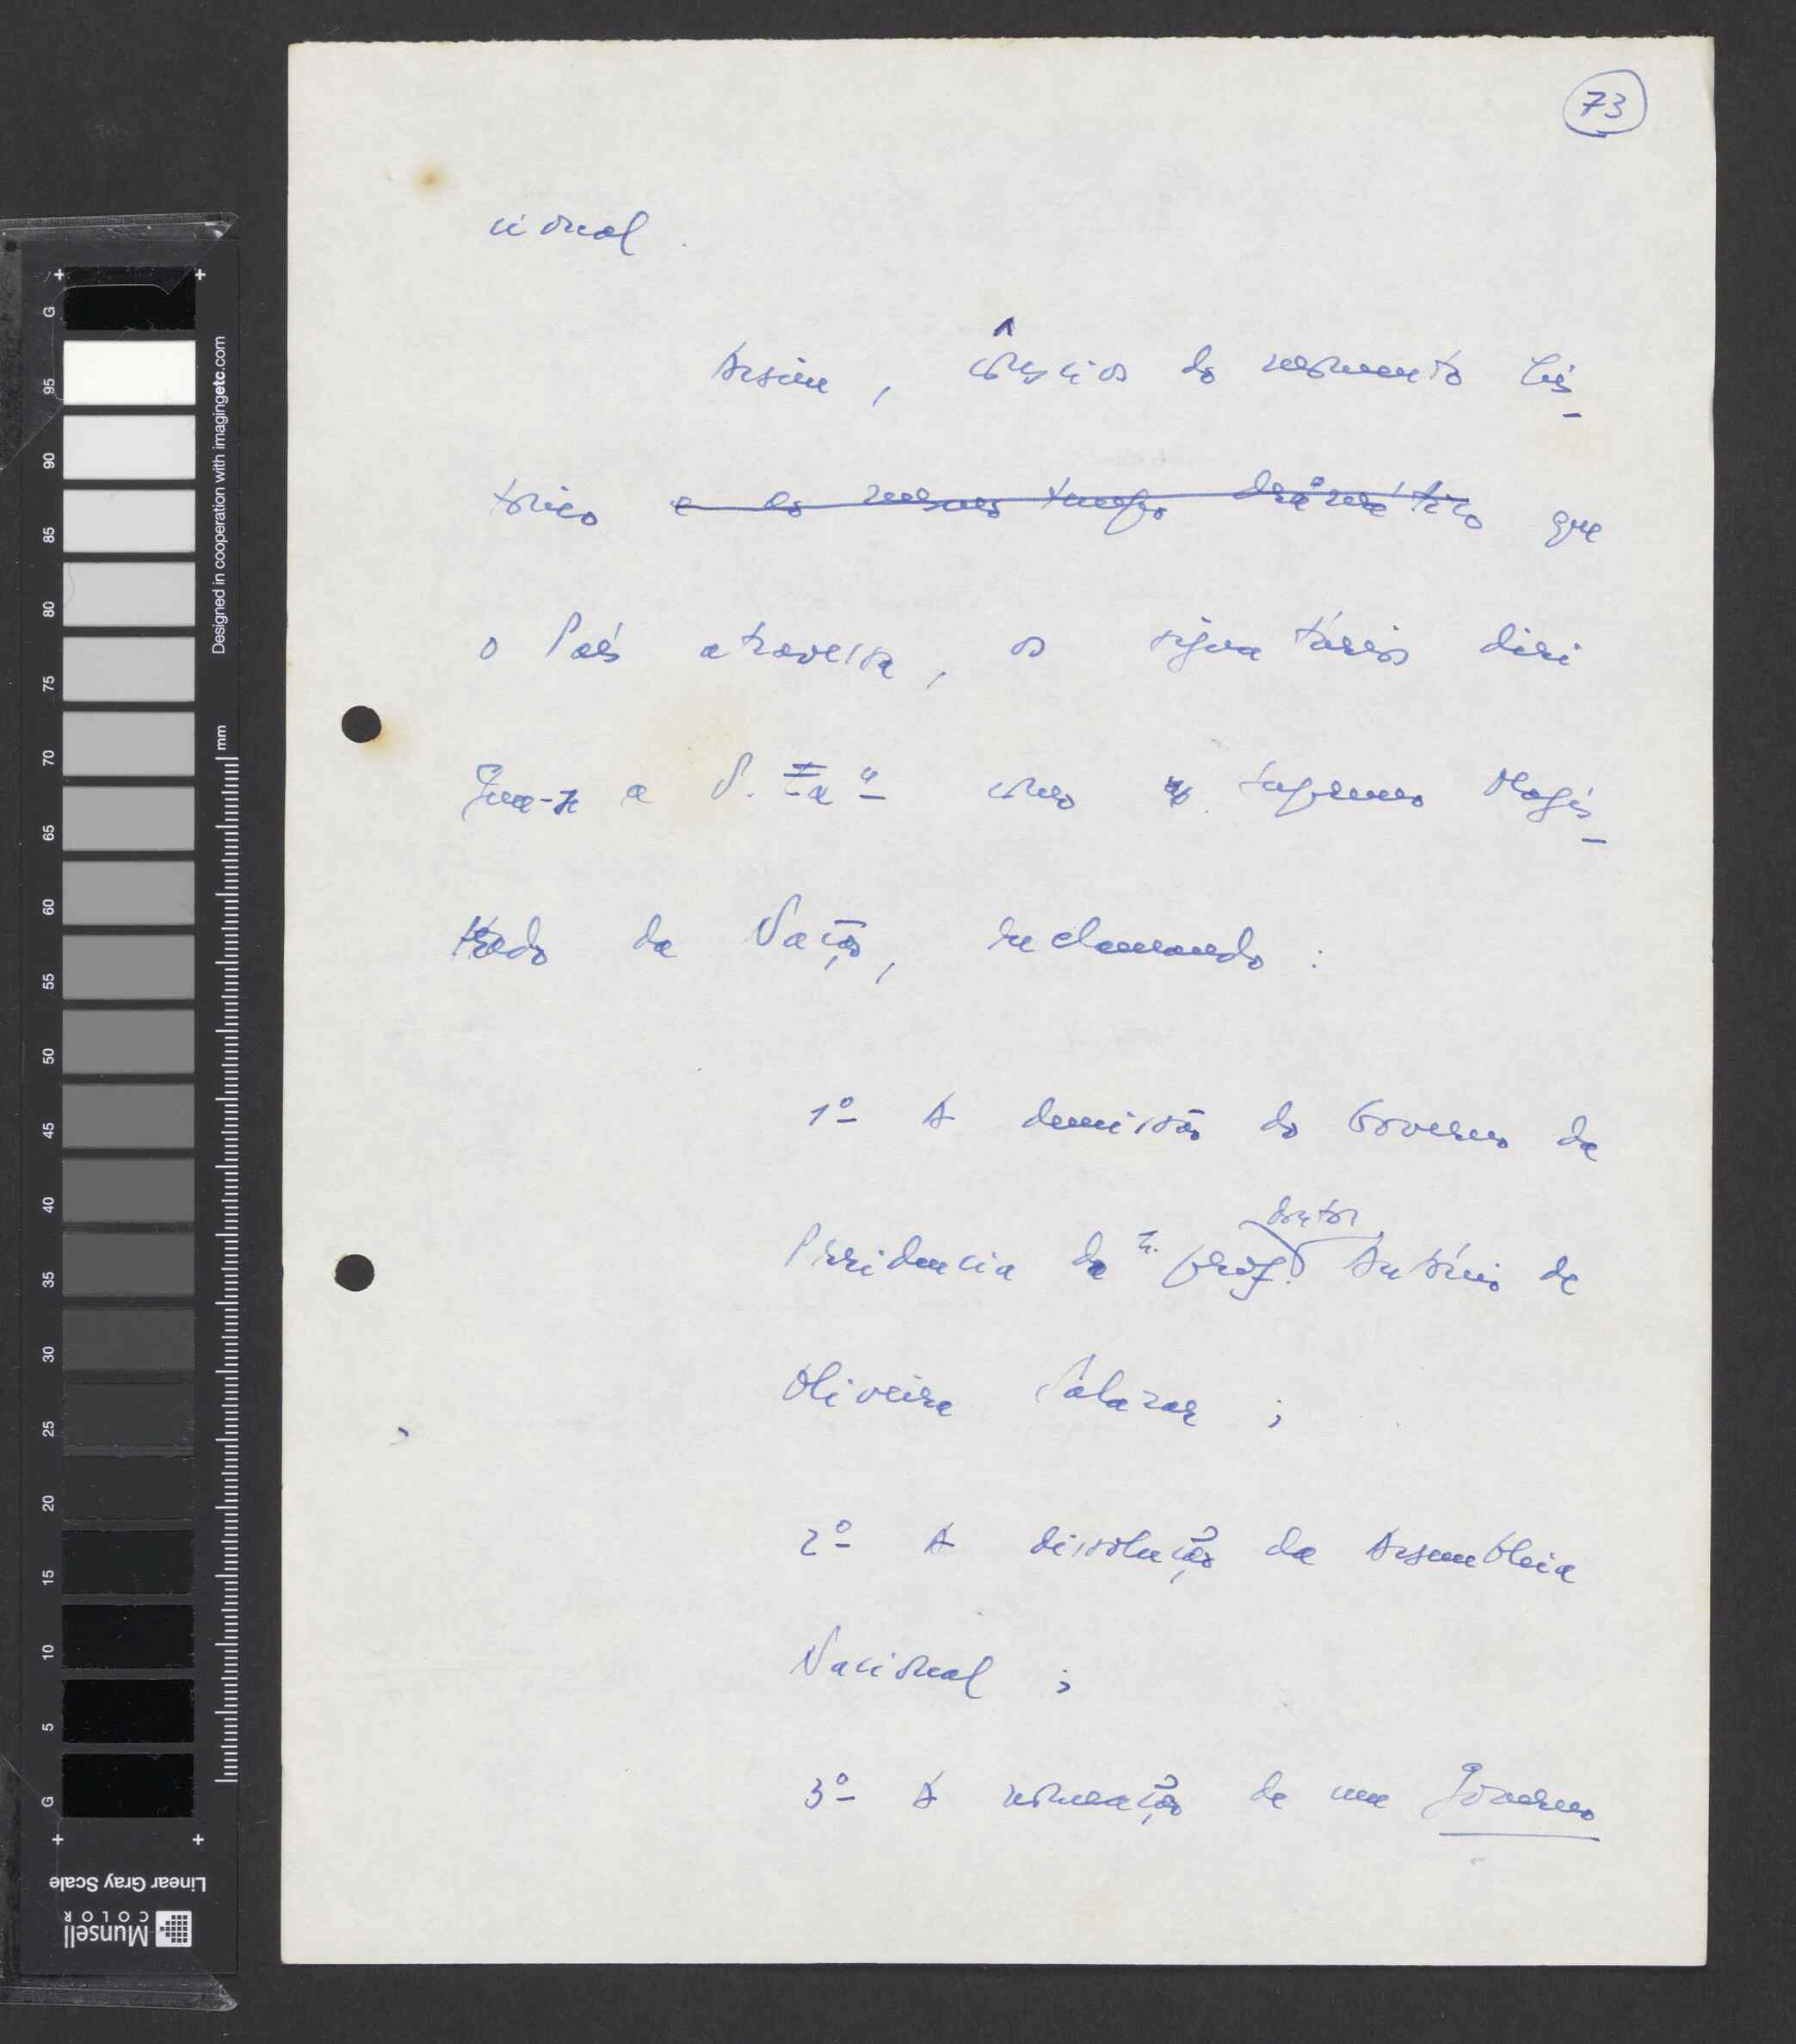 73
cional.
Assim, cônscios do momento his-
tórico e ao mesmo tempo dramático que
o País atravessa, os signatários diri
gem-se a V. Exª como o Supremo Magis-
trado da Nação, reclamando:
1º A demissão do Governo da
doutor
Presidencia do sr. prof. António de
Oliveira Salazar;
2º A dissolução da Assembleia
Nacional;
3º A nomeação de um Governo
G 95 90 85 80 75 70 65 60 55 50 45 40 35 30 25 20 15 10 5 G
mm
Designed in cooperation with imagingetc.com
Linear Gray Scale
Munsell
COLOR